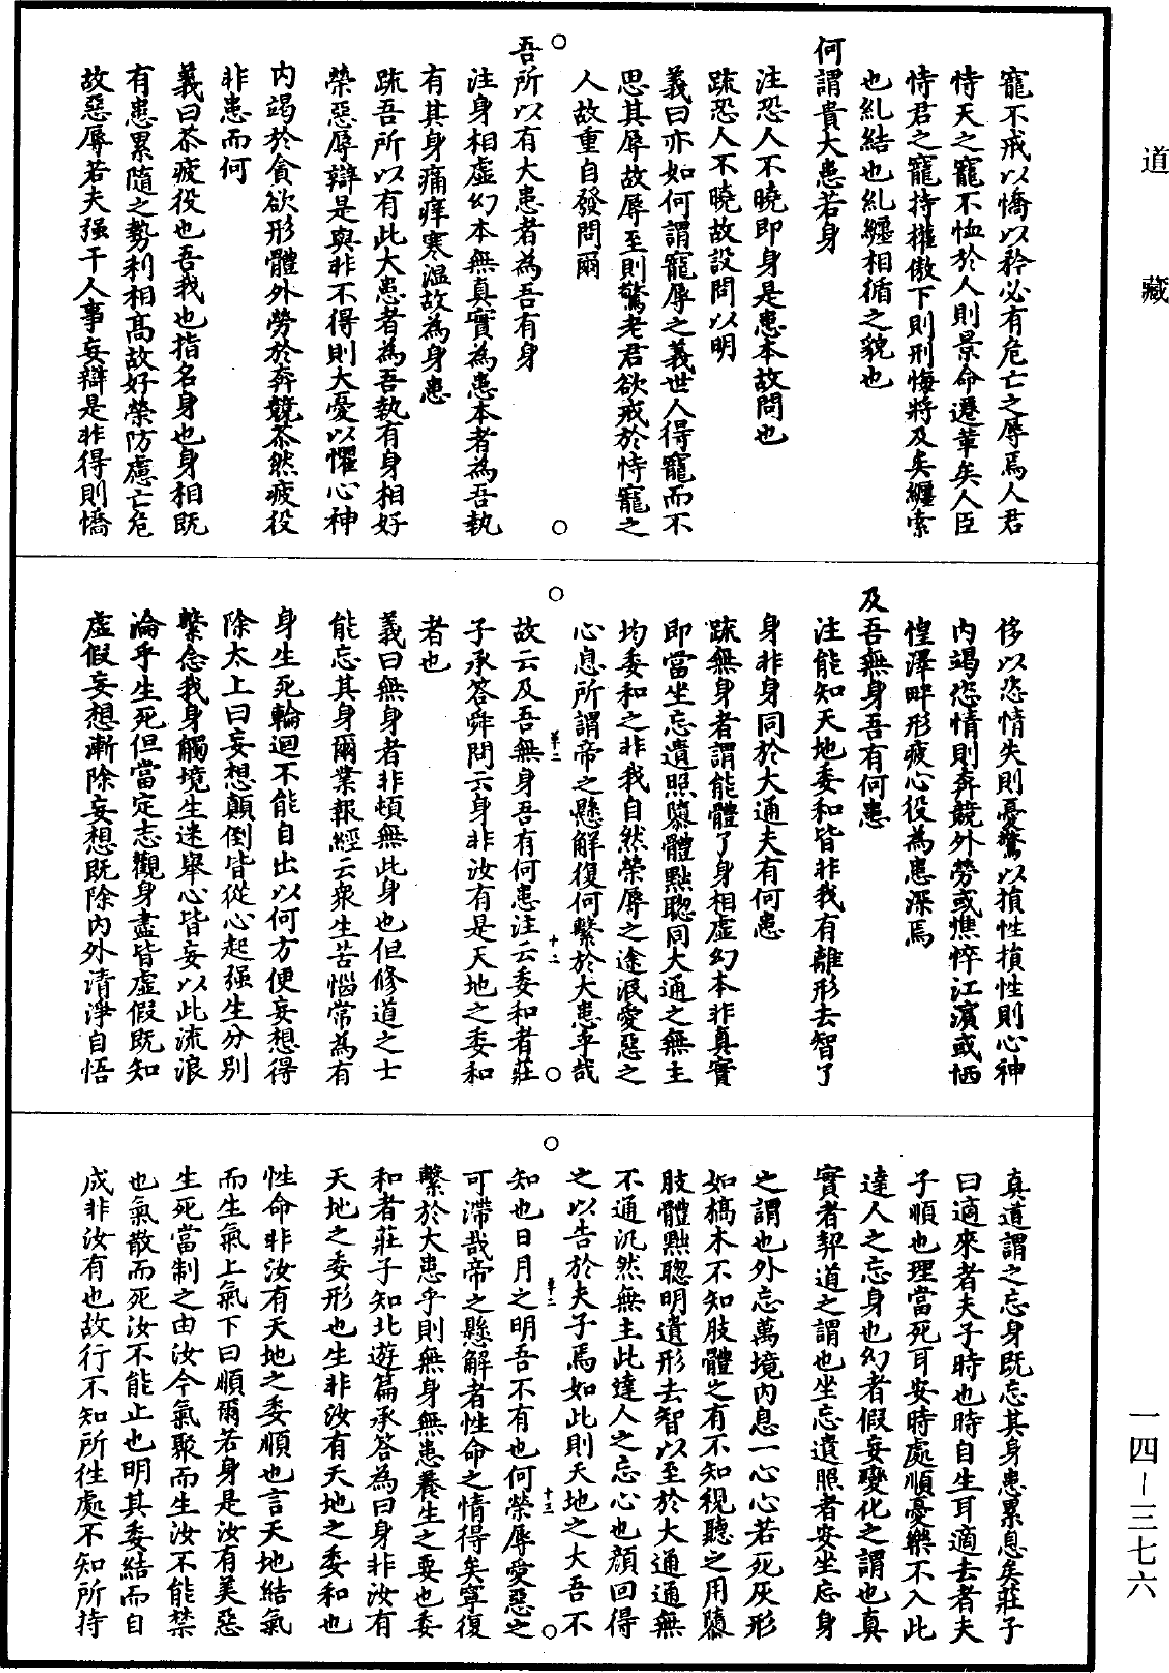 道藏
寵不戒以憍以矜必有危亡之辱焉人君
恃天之寵不恤於人則景命遷革矣人臣
恃君之寵持權傲下則刑悔將及矣纏索
也糺結也糺纏相循之貌也
何謂貴大患若身
注恐人不曉即身是患本故問也
疏恐人不曉故設問以明
義曰亦如何謂寵辱之義世人得寵而不
思其辱故辱至則驚老君欲戒於恃寵之
人故重自發問爾
吾所以有大患者為吾有身
注身相虛幻本無真實為患本者為吾執
有其身痛痒寒溫故為身患
疏吾所以有此大患者為吾執有身相好
榮惡辱辯是與非不得則大憂以懼心神
內竭於貪欲形體外勞於奔競苶然疲役
非患而何
義曰苶疲役也吾我也指名身也身相既
有患累隨之勢利相高故好榮防慮亡危
故惡辱若夫强干人事妄辯是非得則憍
侈以恣情失則憂驚以損性損性則心神
內竭恣情則奔競外勞或憔悴江濱或恓
惶澤畔形疲心役為患深焉
及吾無身吾有何患
注能知天地委和皆非我有離形去智了
身非身同於大通夫有何患
疏無身者謂能體了身相虛幻本非真實
即當坐忘遺照隳體黜聰同大通之無主
均委和之非我自然榮辱之途泯愛惡之
心息所謂帝之懸解復何繫於大患乎哉
故云及吾無身吾有何患注云委和者莊
子承答舜問云身非汝有是天地之委和
者也
義曰無身者非頓無此身也但修道之士
能忘其身爾業報經云衆生苦惱常為有
身生死輪迴不能自出以何方便妄想得
除太上曰妄想顛倒皆從心起强生分別
繫念我身觸境生迷舉心皆妄以此流浪
淪乎生死但當定志觀身盡皆虛假既知
虛假妄想漸除妄想既除內外清淨自悟
真道謂之忘身既忘其身患累息矣莊子
曰適來者夫子時也時自生耳適去者夫
子順也理當死耳安時處順憂樂不入此
達人之忘身也幻者假妄變化之謂也真
實者契道之謂也坐忘遺照者安坐忘身
之謂也外忘萬境內息一心心若死灰形
如槁木不知肢體之有不知視聽之用隳
肢體黜聰明遺形去智以至於大通通無
不通汎然無主此達人之忘心也顏回得
之以告於夫子焉如此則天地之大吾不
知也日月之明吾不有也何榮辱愛惡之
可滯哉帝之懸解者性命之情得矣寧復
繫於大患乎則無身無患養生之要也委
和者莊子知北遊篇承答為曰身非汝有
天地之委形也生非汝有天地之委和也
性命非汝有天地之委順也言天地結氣
而生氣上氣下曰順爾若身是汝有美惡
生死當制之由汝今氣聚而生汝不能禁
也氣散而死汝不能止也明其委結而自
成非汝有也故行不知所往處不知所持
一四—三七六